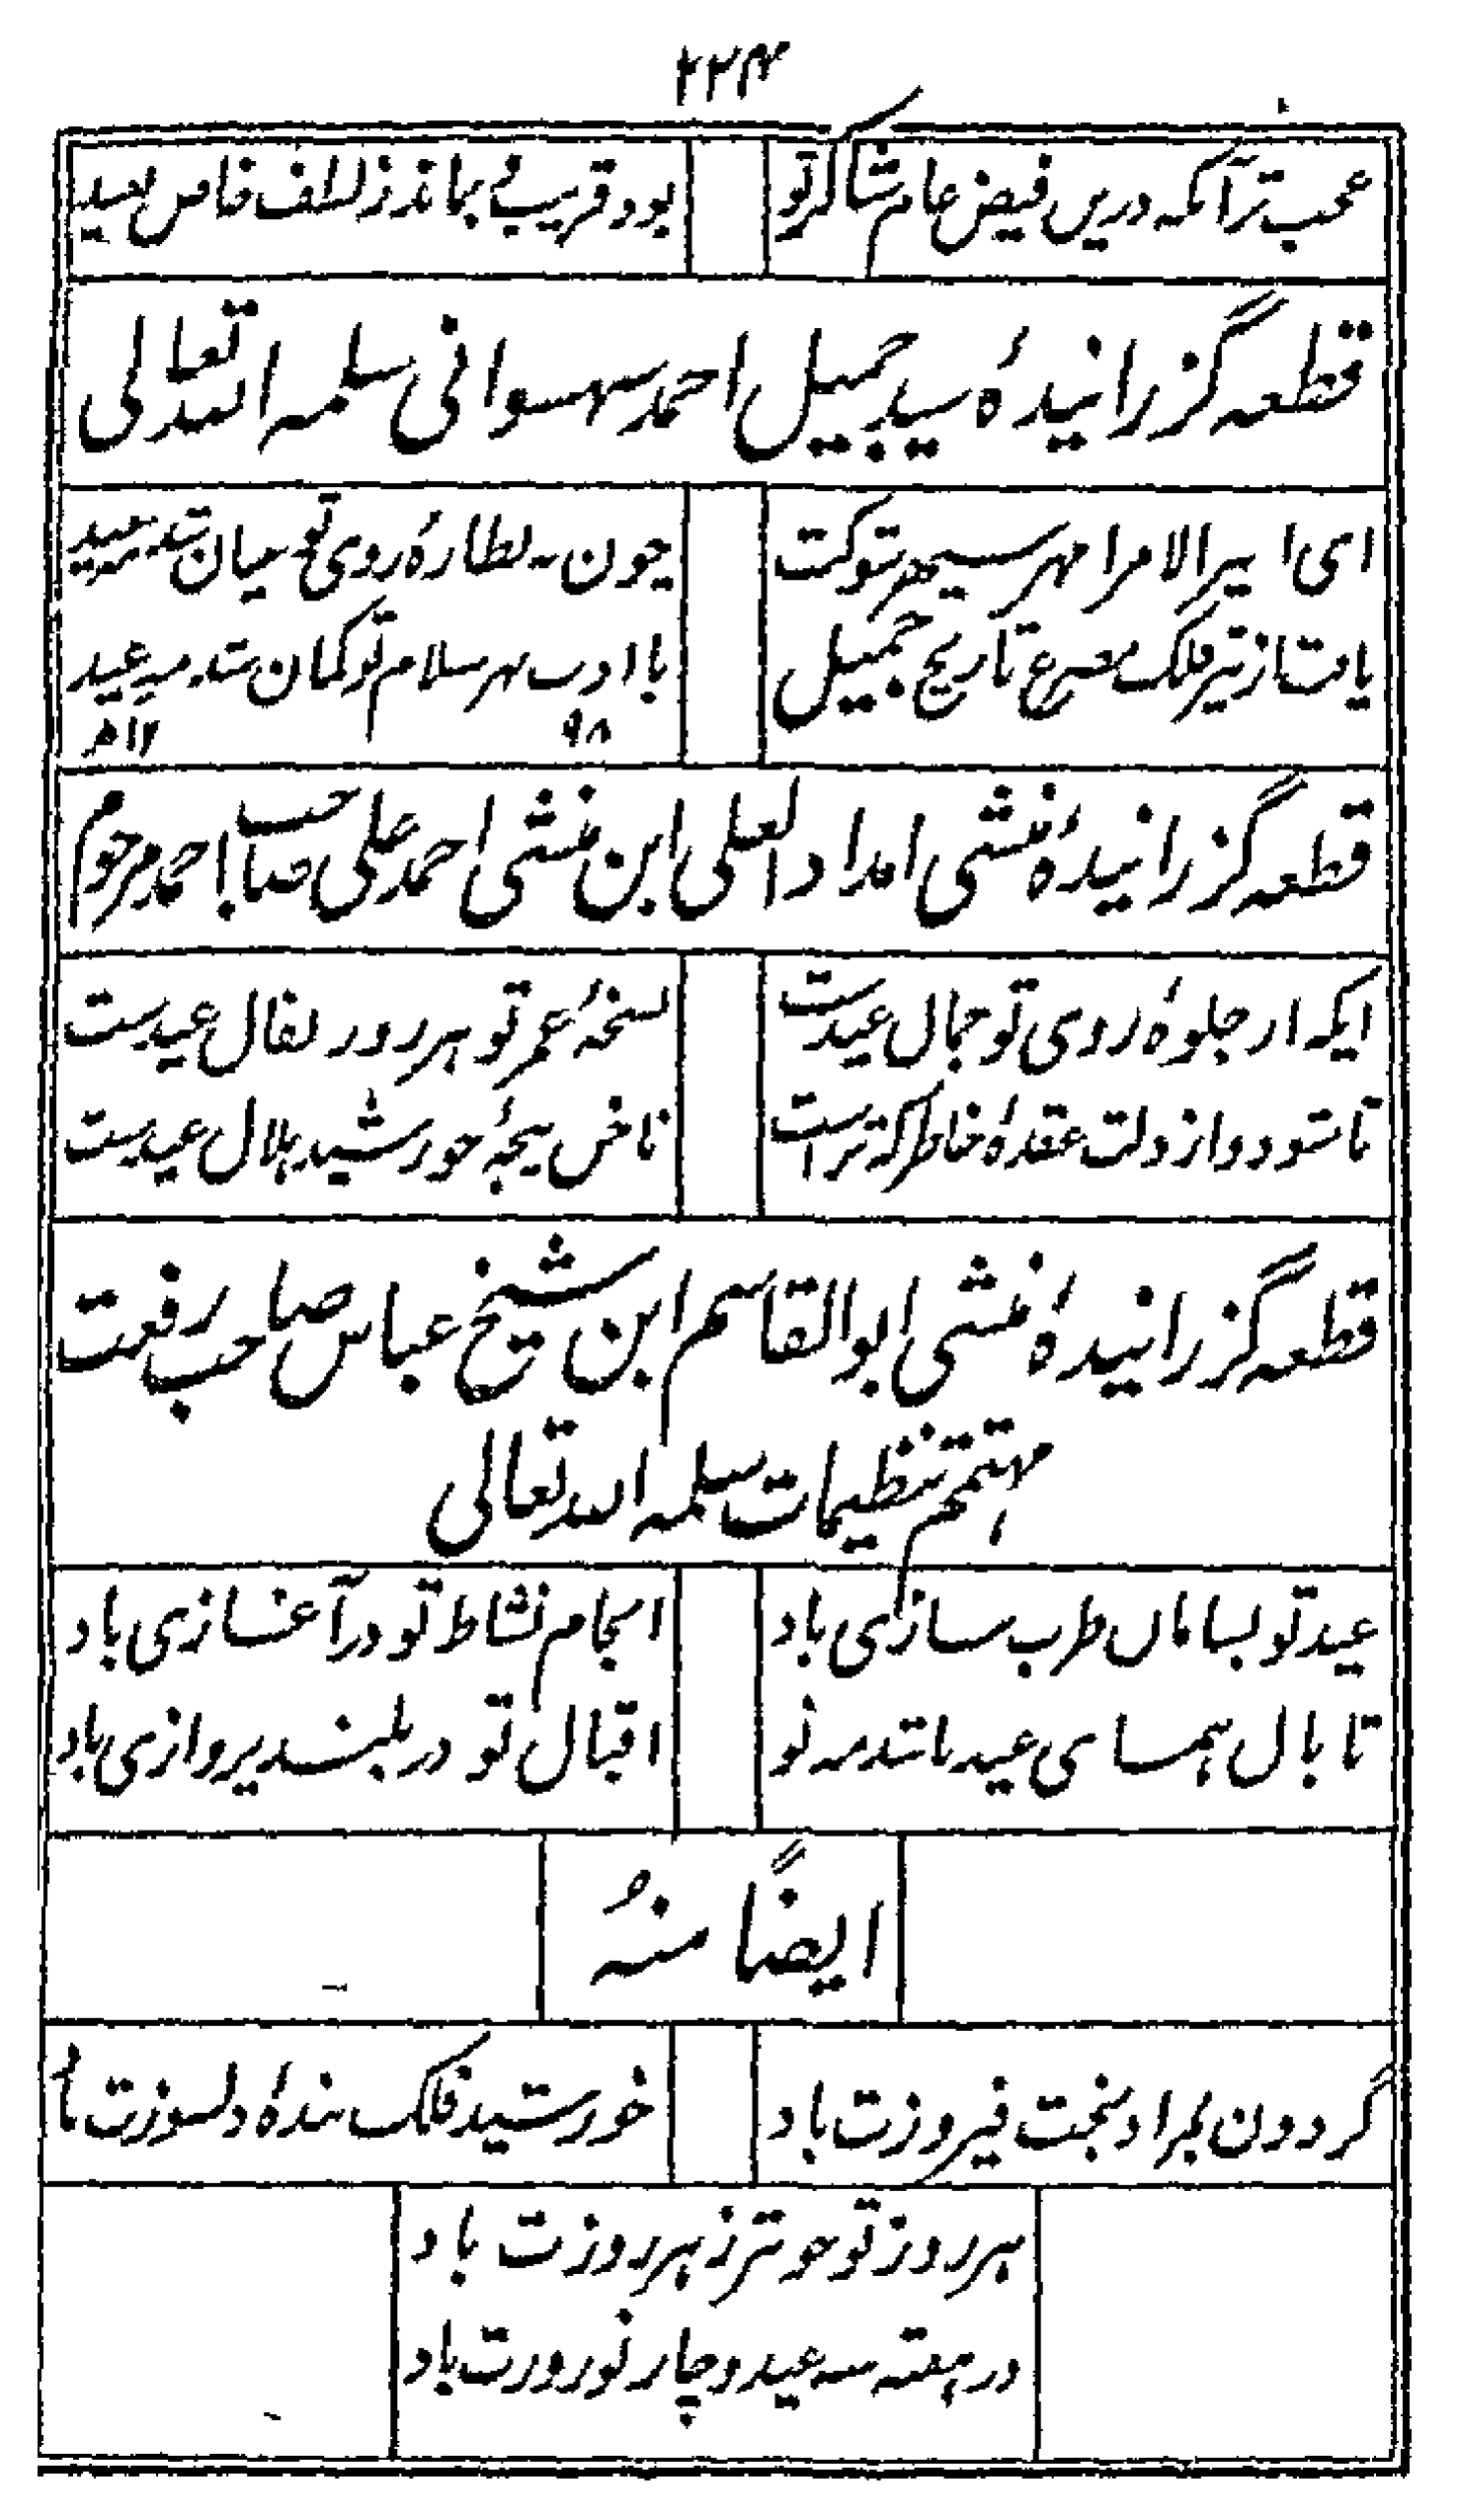 ۲۲۴
عجب ترآنکه دریں فیض عام شاکر تو
بود قریب و بماند ز لطف خاص بعید
قطعه گزرانیدۀ سید جمیل احمد سهسوانی سلمه الله تعالی
ای امیر الامرا مهر سپهر شوکت
چون به نظارۀ روی تو میان شد مه عید
یافت از تیر فلک مصرع تاریخ جمیل
با ادب بهر سلام تو کمان شد مه عید
۹۸ ۱۲ه
قطعه گزرانیدۀ منشی امداد العلی ابن منشی احمد علی صاحب احمد مرحوم
ایکه از جلوۀ روی تو جمال عیدست
نسخۀ عمر تو هر روز بفال عیدست
تا شود وا ز دلت عقدۀ خاطر که تراست
ناخن پنجۀ خورشید هلال عیدست
قطعه گزرانیدۀ منشی ابوالقاسم ابن شیخ عباس صاحب رفعت
مهتمم تنظیمات سلمه الله تعالی
عید تو بساماں طرب سازی باد
انجام نشاط تو در آغازی باد
تا بال همای عید باشد مه نو
اقبال تو در بلند پروازی باد
ایضاً منهُ
گردون بمراد بخت فیروزت باد
خورشید فلک بندۀ دلسوزت باد
هر روز تو خوشتر ز هر روزت باد
در هفته سه عید و چار نوروزت باد